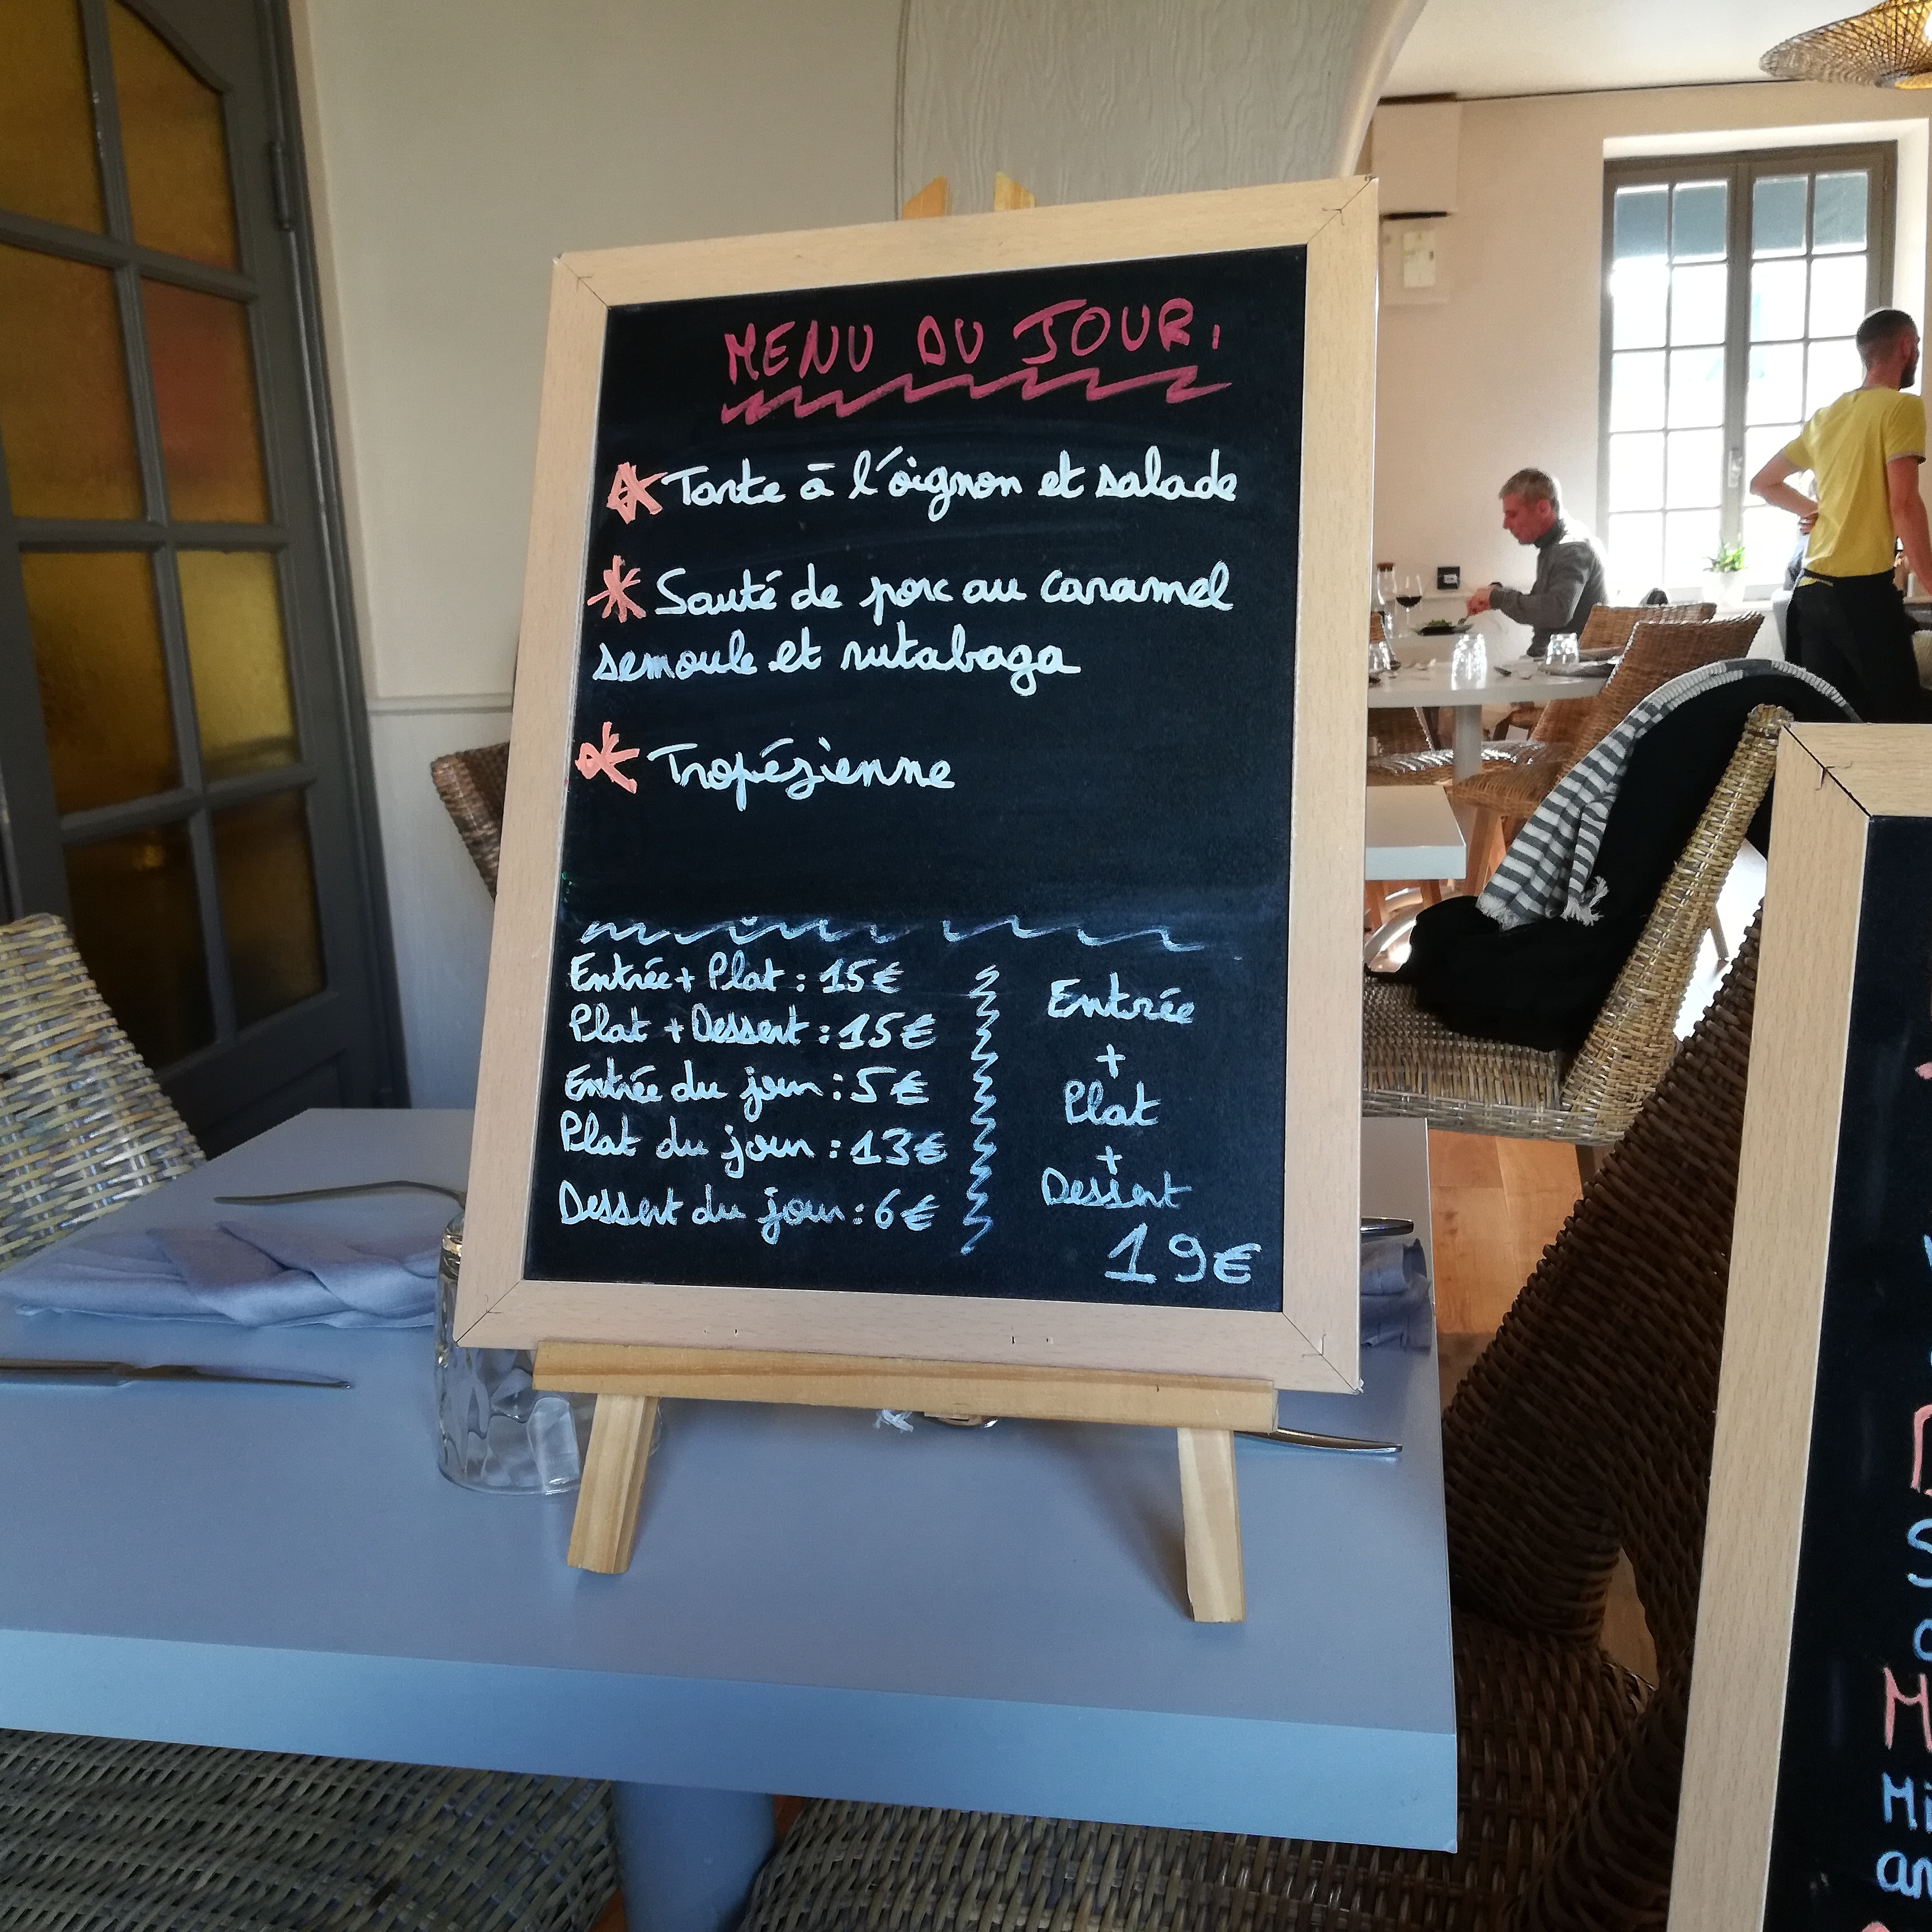 MENU DU JOUR.
Tarte à l'oignon et salade
Sauté de porc au caramel
semoule et rutabaga
Tropézienne
Entrée + Plat : 15€
Plat + Dessert : 15€
Entrée du jour : 5€
Plat du jour : 13€
Dessert du jour : 6€
Entrée
+
Plat
+
Dessert
19€
S
M
Mi
an